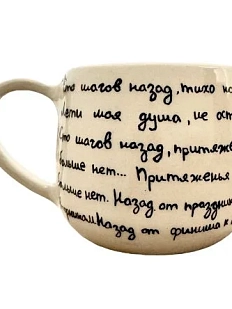 Сто шагов назад, тихо на
Лети моя душа, не ост
Сто шагов назад, притяже
больше нет... Притяженья
больше нет. Назад от праздник
Назад от финиша к